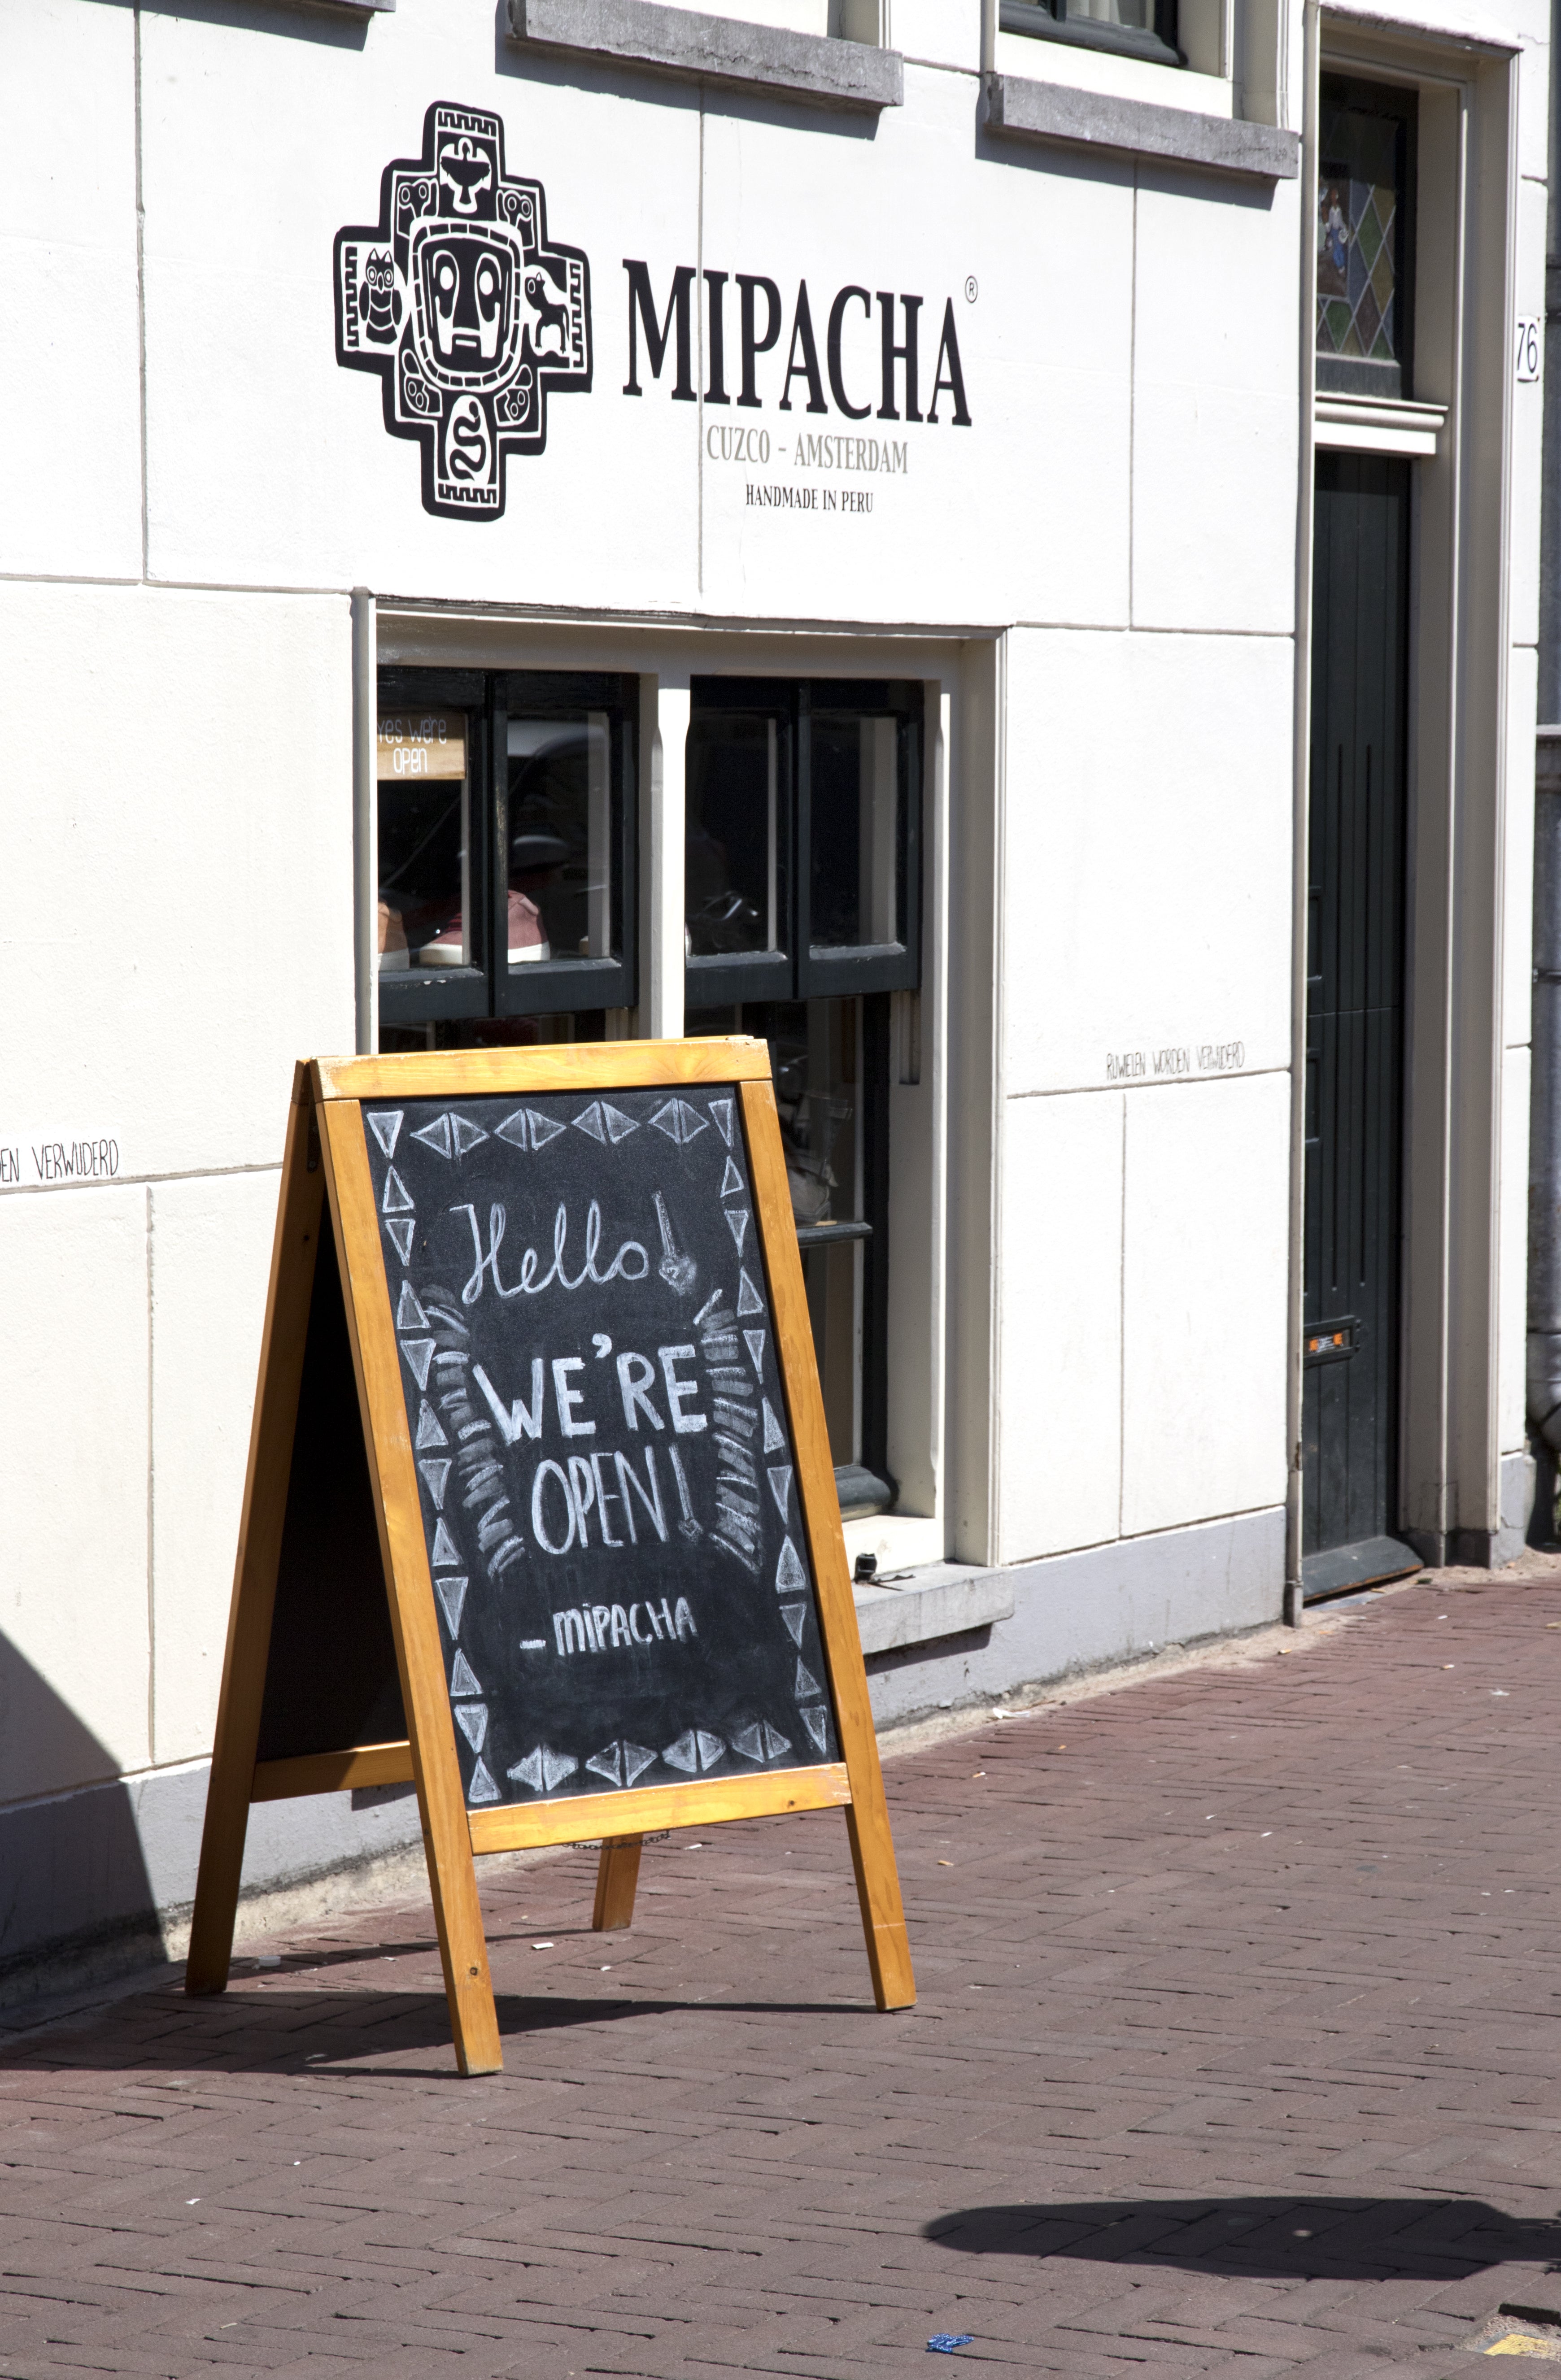 MIPACHA®
CUZCO - AMSTERDAM
HANDMADE IN PERU
76
Yes we're
open
RIJWIELEN WORDEN VERWIJDERD
EN VERWIJDERD
Hello!
WE'RE
OPEN!
- MiPACHA